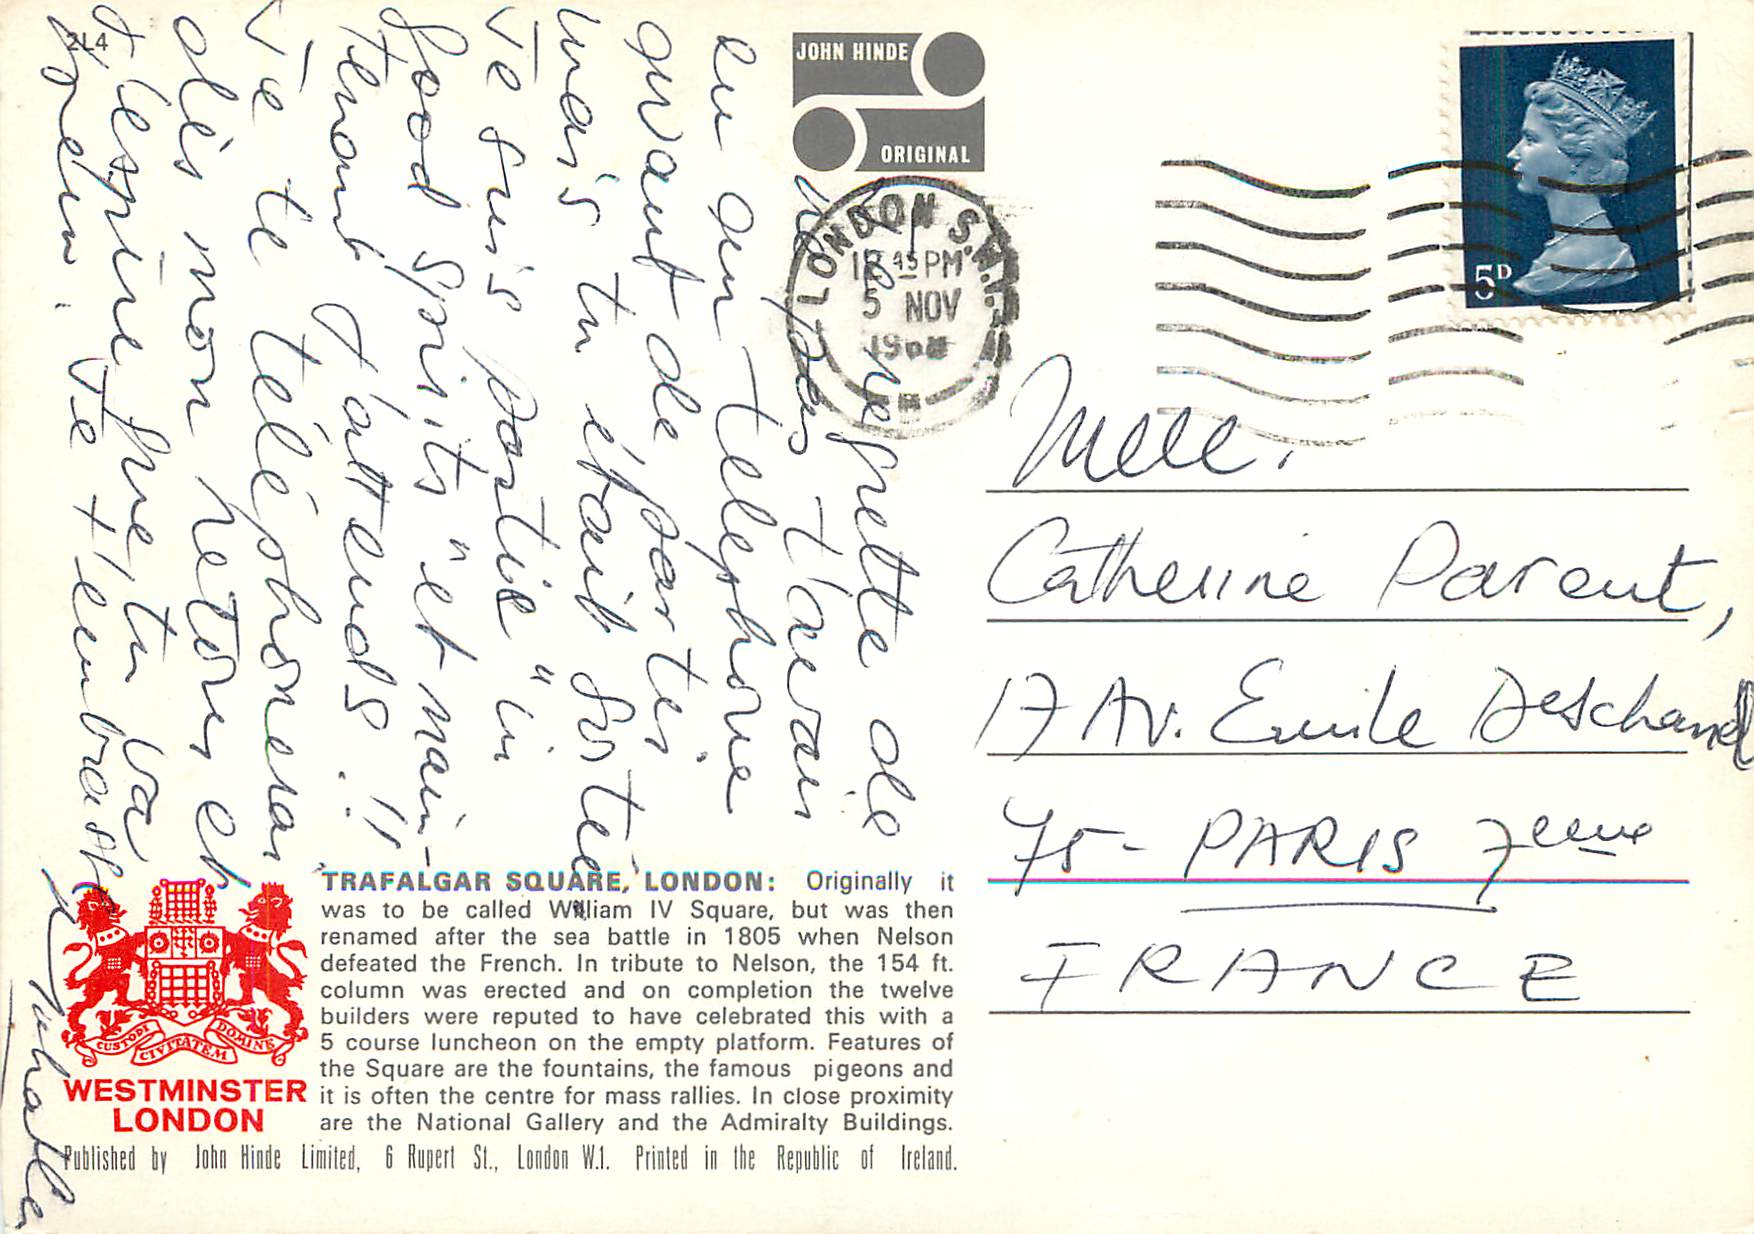 2L4
JOHN HINDE
ORIGINAL
LONDON S.W.1.
45 PM
5 NOV
19
5D
Je regrette de
ne pas t'avoir
eu au telephone
avant de partir
mais tu étais sortie
Je suis partie "in
good spirits" et main-
tenant j'attends !!
Je te téléphonerai
dès mon retour et
j'espère que tu va
bien. Je t'embrasse
Melle.
Catherine Parent,
17 Av. Emile Deschanel
75 - PARIS 7eme
FRANCE
TRAFALGAR SQUARE, LONDON: Originally it
was to be called William IV Square, but was then
renamed after the sea battle in 1805 when Nelson
defeated the French. In tribute to Nelson, the 154 ft.
column was erected and on completion the twelve
builders were reputed to have celebrated this with a
5 course luncheon on the empty platform. Features of
the Square are the fountains, the famous pigeons and
it is often the centre for mass rallies. In close proximity
are the National Gallery and the Admiralty Buildings.
CUSTODI CIVITATEM DOMINE
WESTMINSTER
LONDON
Published by John Hinde Limited, 6 Rupert St., London W.1. Printed in the Republic of Ireland.